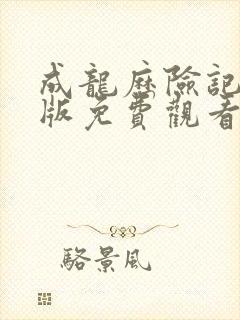 成龍歷險記
版免費觀看
駱景風